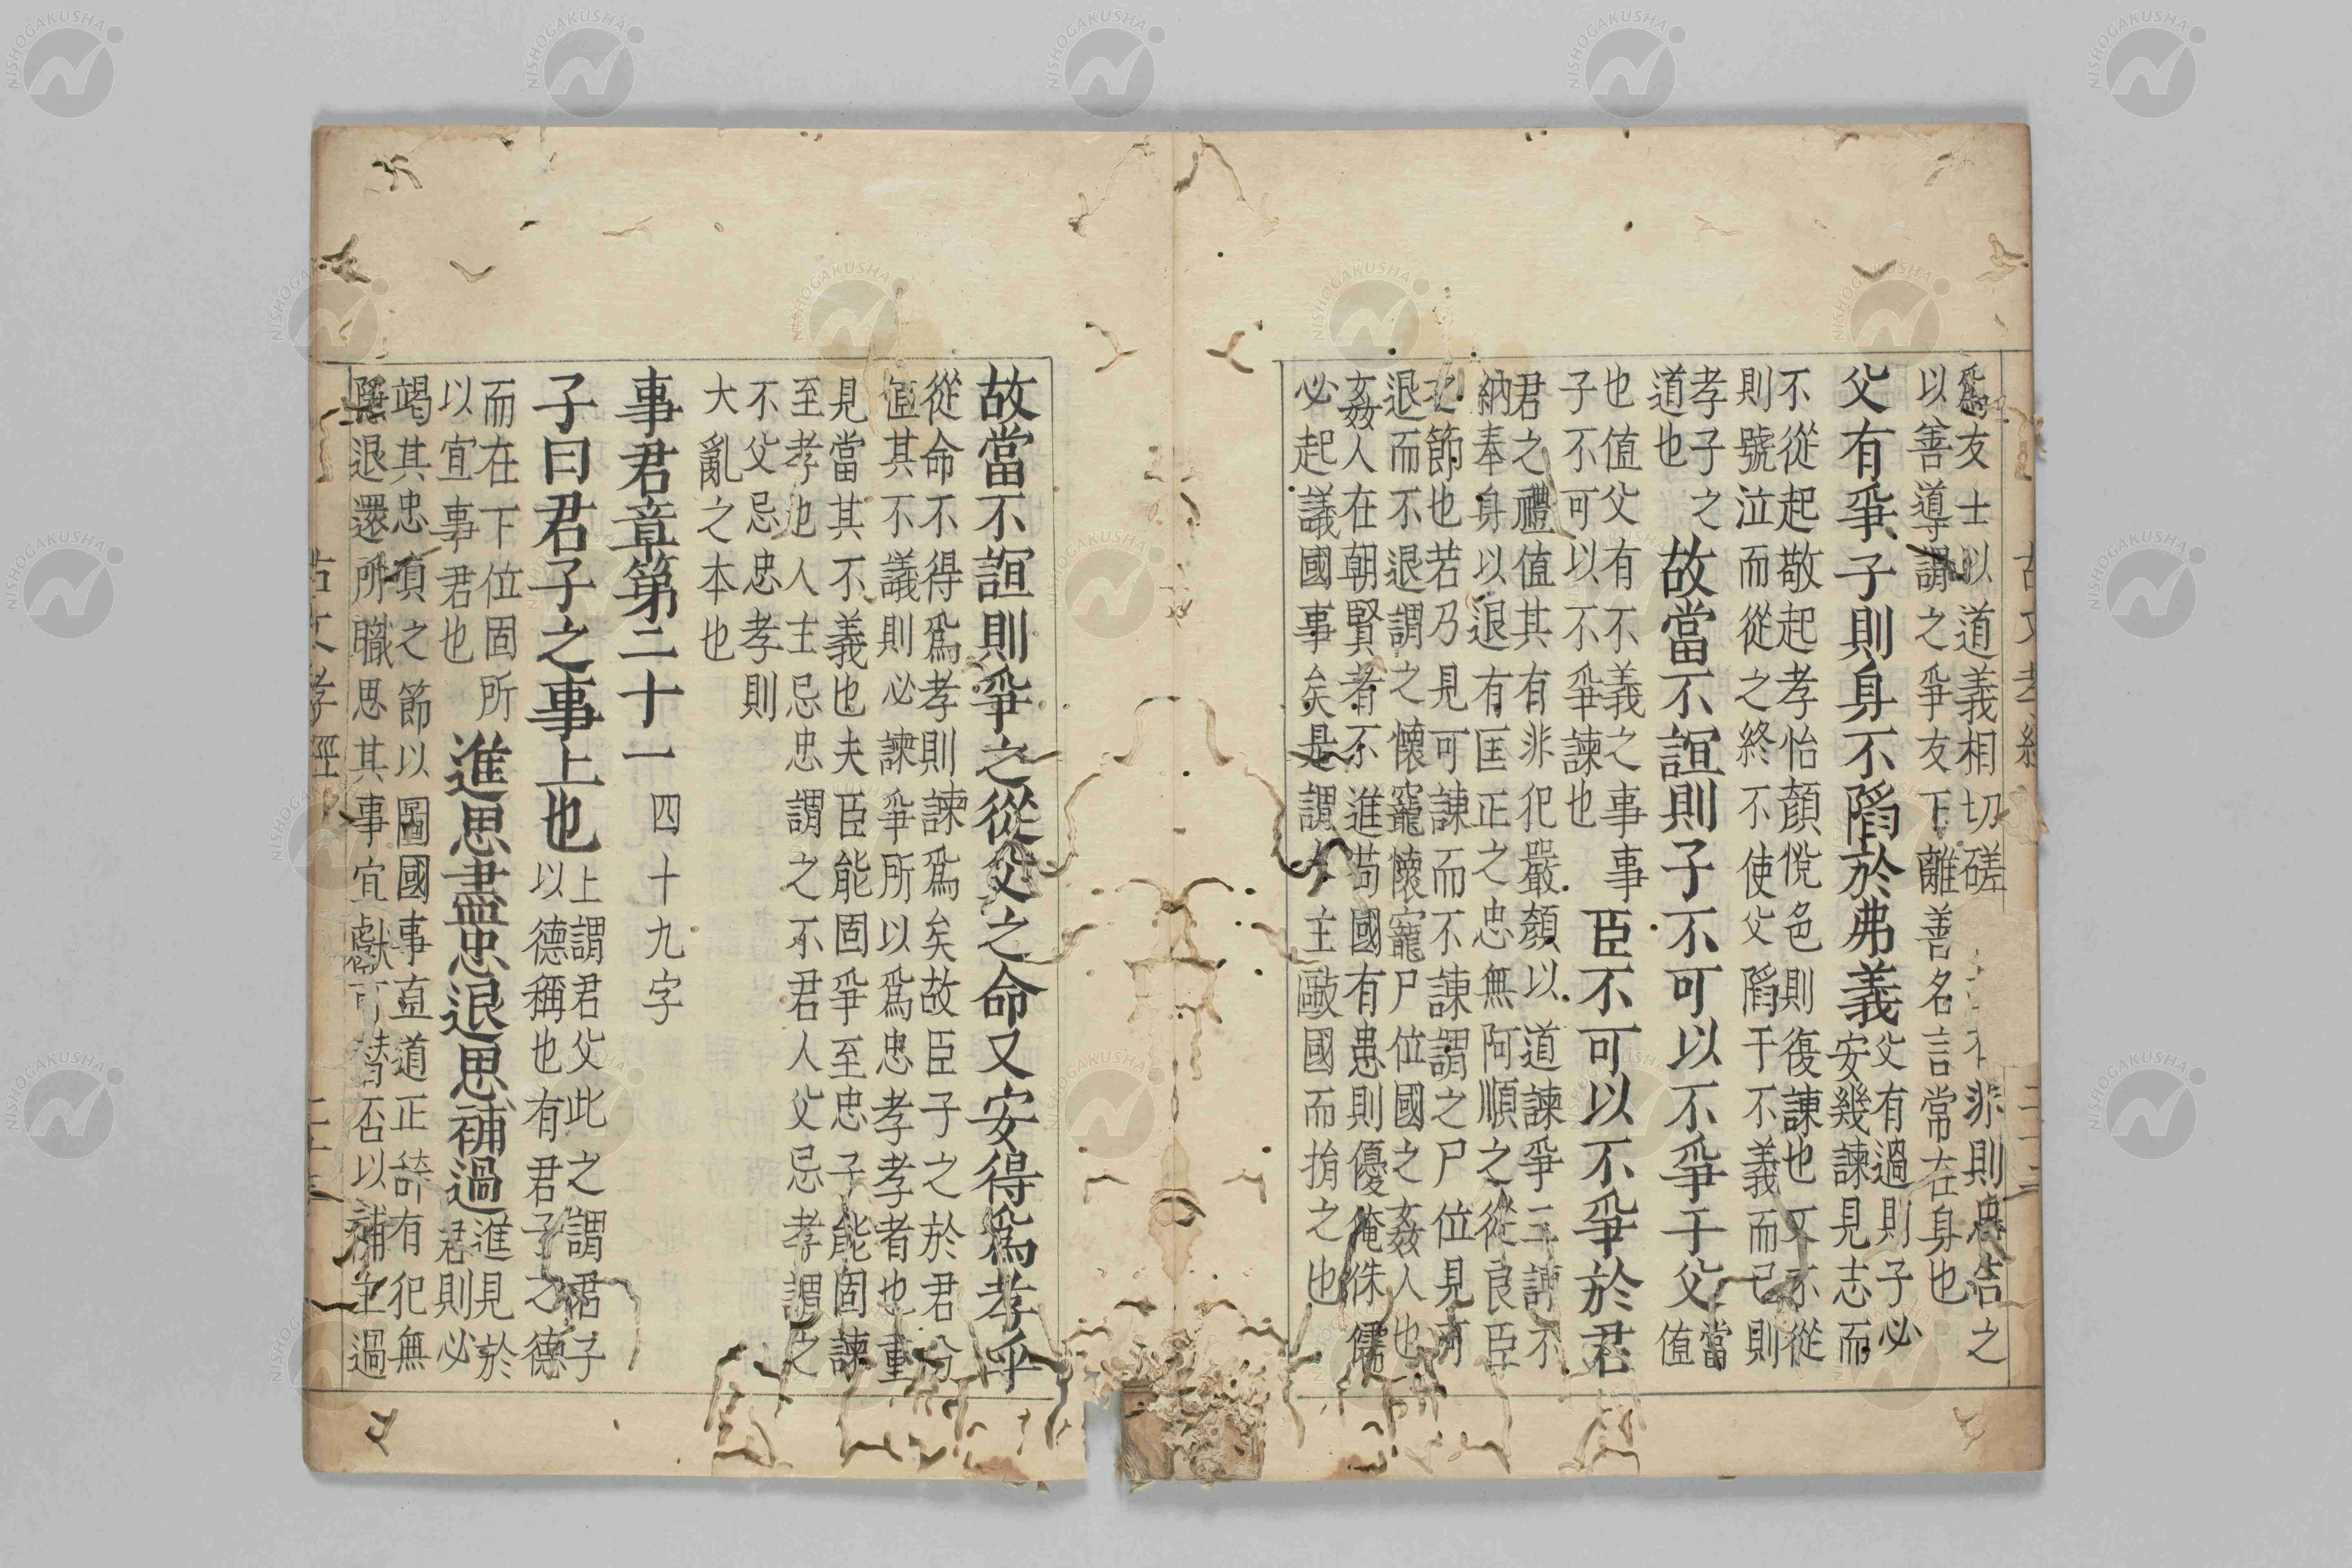 爲友士以道義相切磋
非則忠告之
以善導謂之爭友下離善名言常在身也
父有爭子則身不陷於弗義
父有過則子必
安幾諫見志而
不從起敬起孝怡顏悅色則復諫也又不從
則號泣而從之終不使父陷于不義而已則
孝子之
道也
故當不誼則子不可以不爭于父
當
值
也值父有不義之事事
子不可以不爭諫也
臣不可以不爭於君
君之禮值其有非犯嚴顏以道諫爭三諫不
納奉身以退有匡正之忠無阿順之從良臣
之節也若乃見可諫而不諫謂之尸位見可
退而不退謂之懷寵懷寵尸位國之姦人也
姦人在朝賢者不進苟國有患則優俺侏儒
必起議國事矣是謂人主毆國而捐之也
故當不誼則爭之從父之命又安得爲孝乎
從命不得爲孝則諫爲矣故臣子之於君父
值其不議則必諫爭所以爲忠孝孝者也重
見當其不義也夫臣能固爭至忠子能固諫
至孝也人主忌忠謂之不君人父忌孝謂之
不父忌忠孝則
大亂之本也
事君章第二十一
四十九字
子曰君子之事上也
上謂君父此之謂君子
以德稱也有君子之德
而在下位固所
以宜事君也
進思盡忠退思補過
進見於
君則必
竭其忠貞之節以圖國事直道正辭有犯無
隱退還所職思其事宜獻可替否以補主過
古文孝經
古文孝經
NISHOGAKUSHA